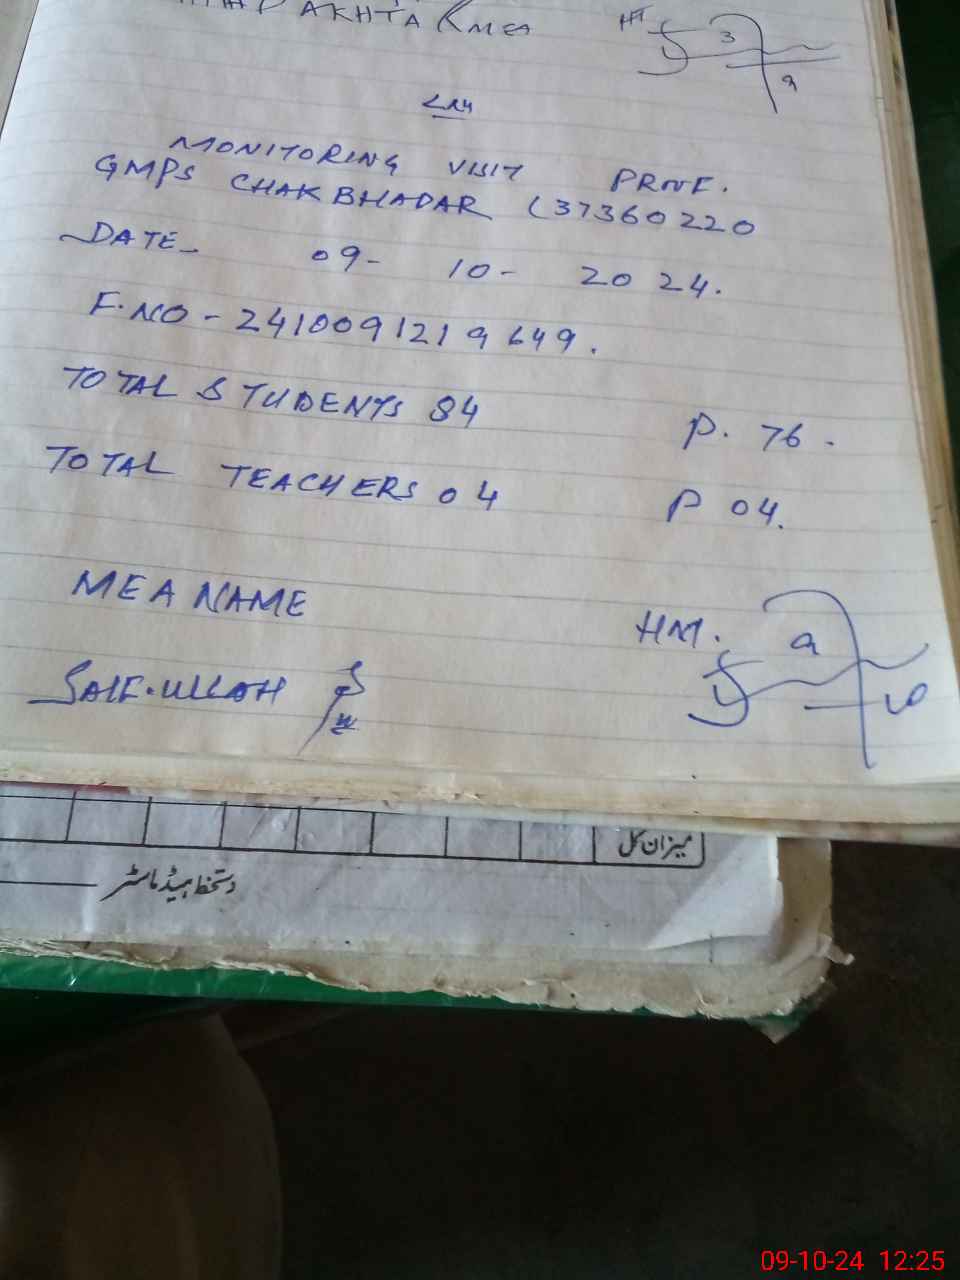 AKHTAR MEA
HT
3
9
MONITORING VISIT PROF.
GMPS CHAK BHADAR (37360220
DATE- 09- 10- 2024.
F.NO - 2410091219649.
TOTAL STUDENTS 84 P. 76.
TOTAL TEACHERS 04 P 04.
MEA NAME
HM.
9
10
SAIF.ULLAH
میزان کل
دستخط ہیڈ ماسٹر
09-10-24 12:25